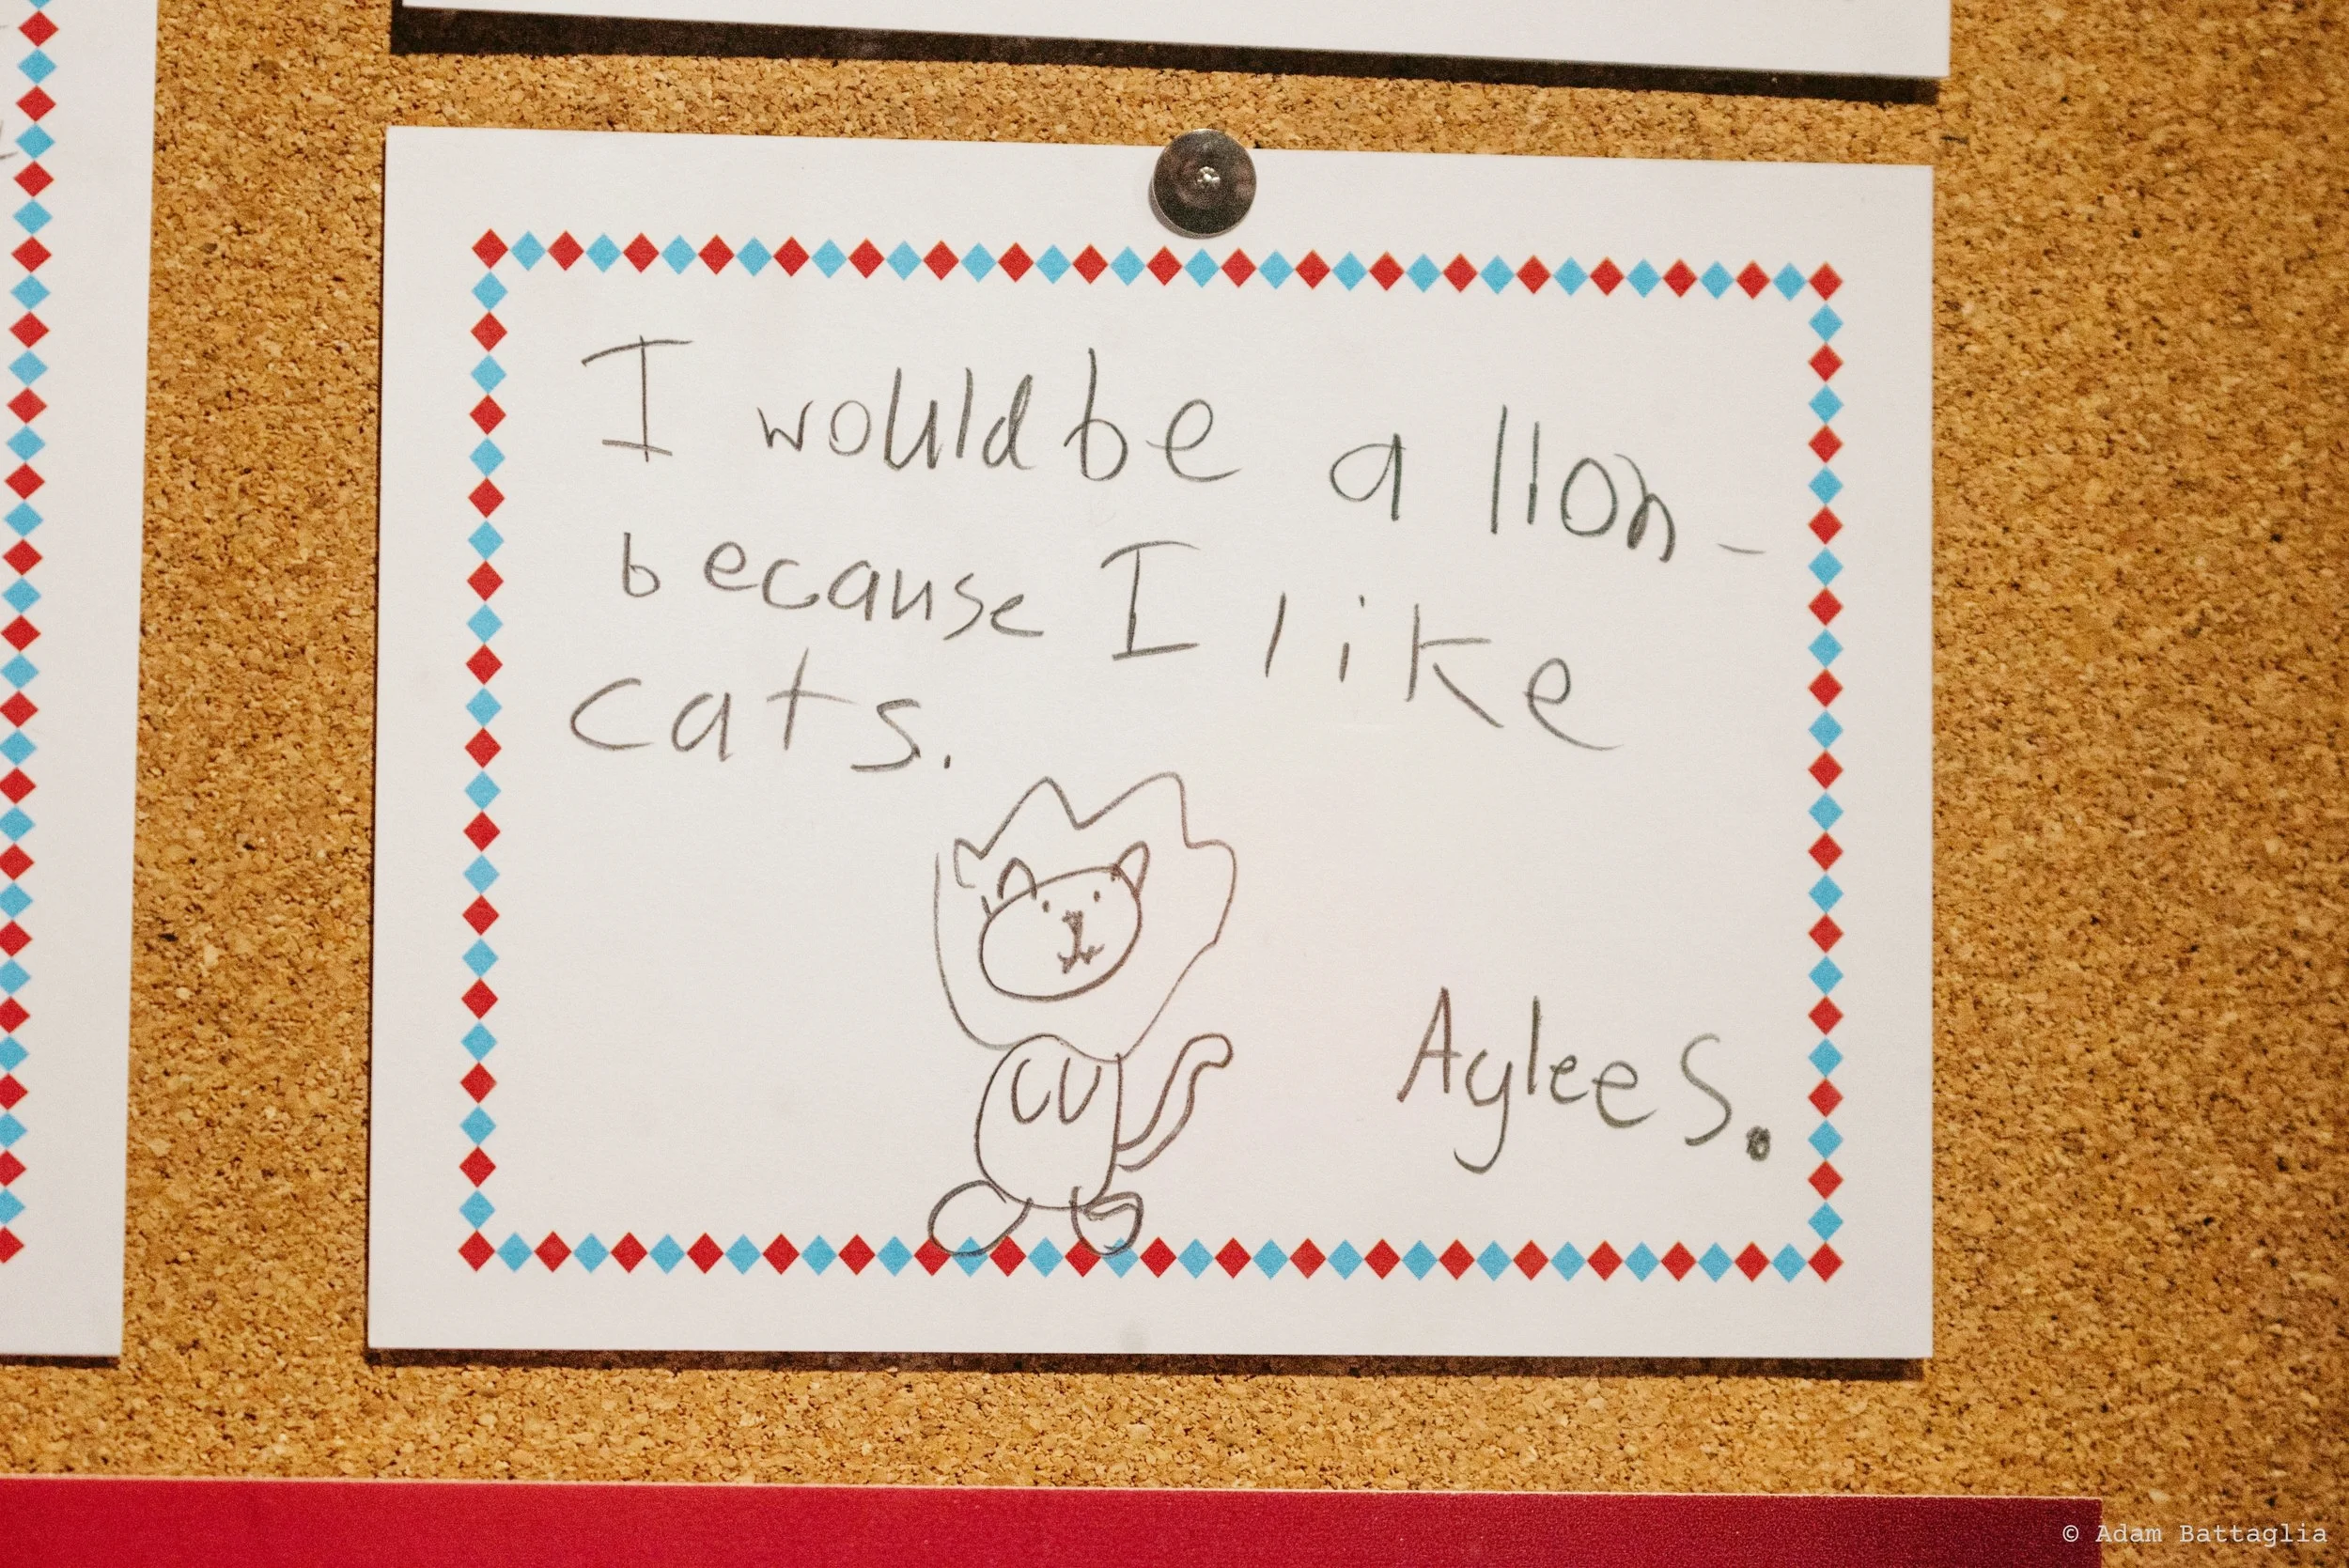 I would be a lion-
because I like
cats.
Aylee S.
© Adam Battaglia